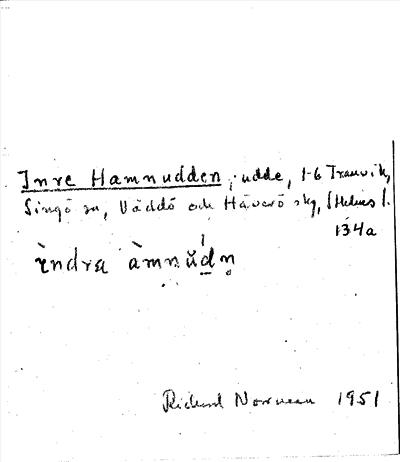 Inre Hamnudden, udde, 1-6 Tranvik,
Singö sn, Väddö och Häverö skg, Sthlms l.
134a
ìndra àmnŭdṇ
Richard Norrman 1951